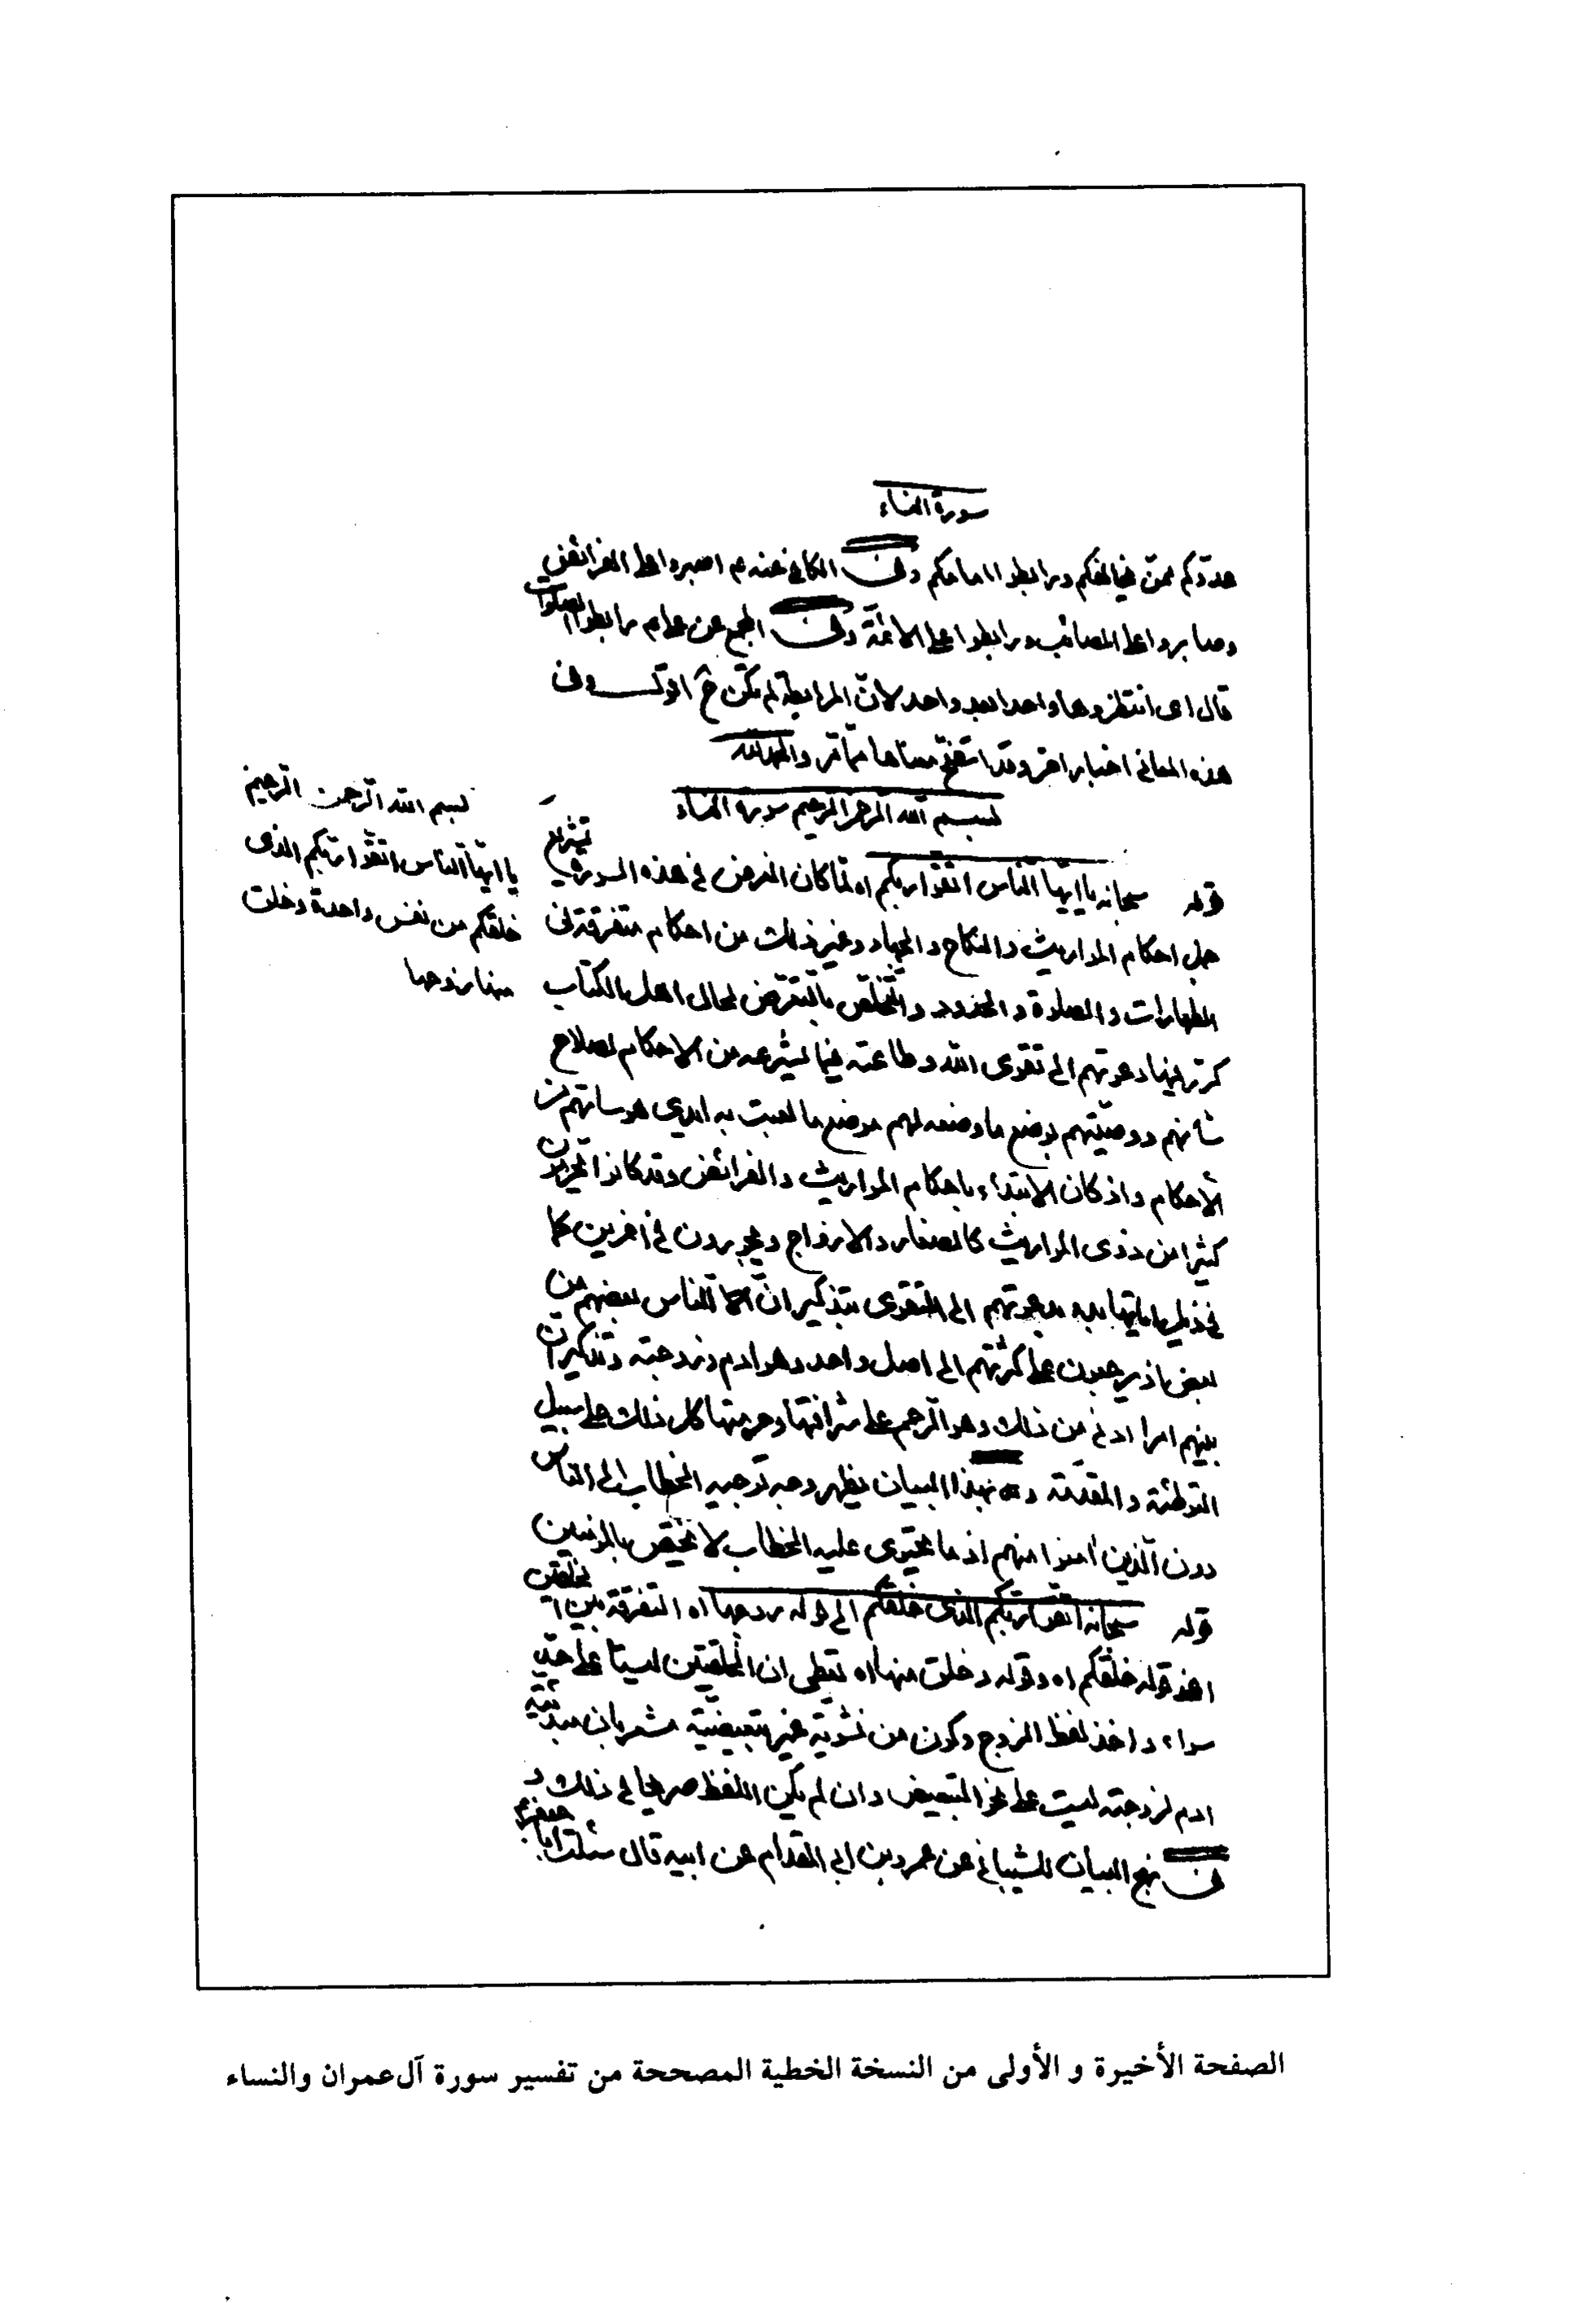 سورة النساء
عدوّكم ممّن يخالفكم ورابطوا امامكم وفى الكافي عنه ع اصبروا على الفرائض
وصابروا على المصائب ورابطوا على الائمّة وفى المجمع عن على ع رابطوا الصلوات
قال اى انتظروها واحدا بعد واحد لانّ المرابطة لم تكن ح اقول وفى
هذه المعانى اخبار اخر وقد اتّضح معناها ممّا مرّ والحمد لله
بسم الله الرحمن الرحيم سورة النساء
قوله سبحانه يا ايّها النّاس اتّقوا ربّكم اه لمّا كان الغرض في هذه السورة تشريع
جل احكام المواريث والنكاح والجهاد وغير ذلك من احكام متفرقة فى
الطهارات والصلوة والحدود والتّخلّص بالتّعرّض لحال اهل الكتاب
كرّر فيها دعوتهم الى تقوى الله وطاعته فيما يشرعه من الاحكام لصلاح
شانهم ووصيّتهم بوضع ما وضعه لهم موضع ما لعبت به ايدى هوساتهم من
الاحكام واذ كان الابتداء باحكام المواريث والفرائض وقد كانوا يحرمون
كثيرا من ذوى المواريث كالصغار والازواج ويجورون في اخرين كما
في ذيل اياتها بدء بدعوتهم الى التقوى بتذكير انّ النّاس بعضهم من
بعض اذ يرجعون على كثرتهم الى اصل واحد وهو ادم وزوجته وتذكير ان
بينهم امرا ادنى من ذلك وهو الرحم على شرافتها وحرمتها كل ذلك على سبيل
التوطئة والمقدّمة وبهذا البيان يظهر وجه توجيه الخطاب الى الناس
دون الّذين امنوا منهم اذ ما يحتوى عليه الخطاب لا يختص بالمؤمنين
قوله سبحانه اتقوا ربّكم الذى خلقكم الى قوله زوجها اه التفرقة بين الخلقتين
اعنى قوله خلقكم اه وقوله وخلق منها اه يعطى ان الخلقتين ليستا على حدّ
سواء واخذ لفظ الزوج وكون من نشويّة غير تبعيضيّة مشعر بان مبدئيّة
ادم لزوجته ليست على نحو التبعيض وان لم يكن اللفظ صريحا في ذلك و
فى نهج البيان للشيبانى عن عمرو بن ابى المقدام عن ابيه قال سئلت ابا جعفر ع
بسم الله الرّحمن الرّحيم
يا ايّها النّاس اتّقوا ربّكم الذى
خلقكم من نفس واحدة وخلق
منها زوجها
الصفحة الأخيرة و الأولى من النسخة الخطية المصححة من تفسير سورة آل‌عمران والنساء